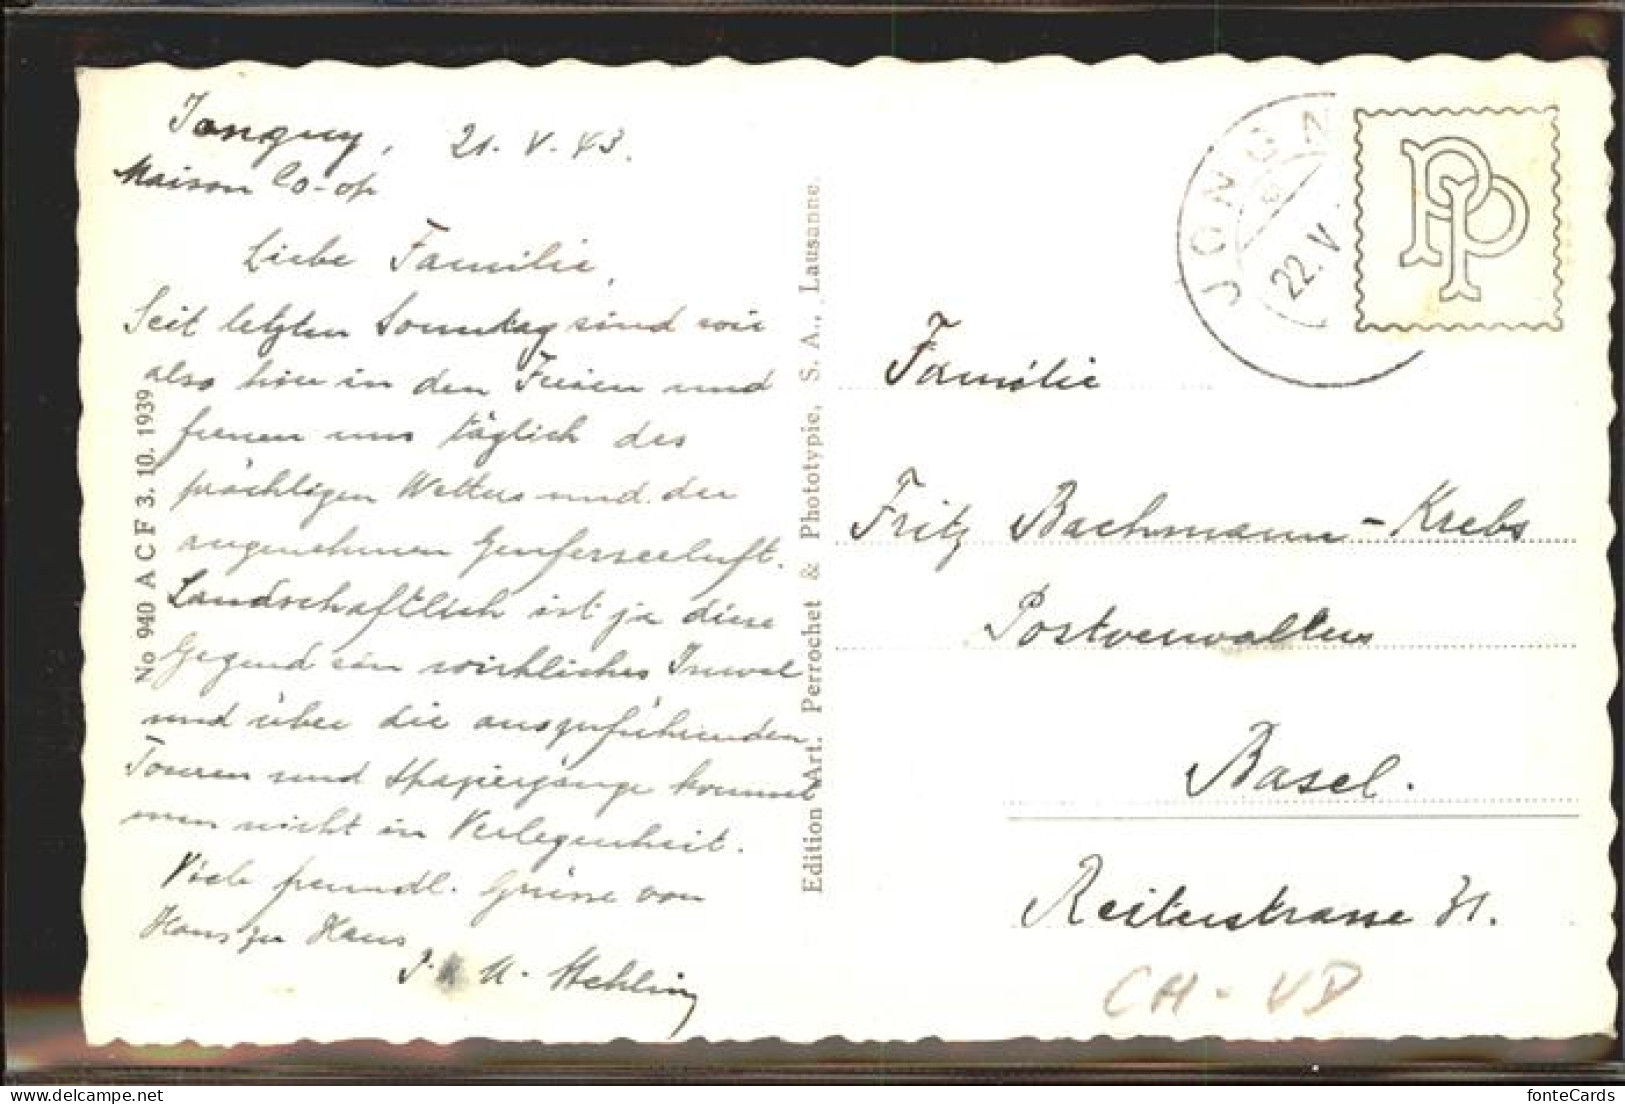 Jongny, 21. V. 43.
Maison Co-op
Liebe Familie,
Seit letzten Sonntag sind wir
also hier in den Ferien und
freuen uns täglich des
prächtigen Wetters und der
angenehmen Genferseeluft.
Landschaftlich ist ja diese
Gegend ein wirkliches Juwel
und über die auszuführenden
Touren und Spaziergänge kommt
man nicht in Verlegenheit.
Viele freundl. Grüsse von
Haus zu Haus
No 940 A C F 3. 10. 1939
Edition d'Art. Perrochet & Phototypie, S. A., Lausanne.
JONGN
22. V
PP
Familie
Fritz Bachmann-Krebs
Postverwalters
Basel.
Reiterstrasse 31.
CH-VD
fonteCards